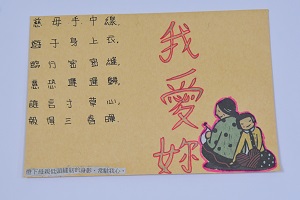 慈母手中線,
遊子身上衣,
臨行密密縫,
意恐遲遲歸,
誰言寸草心,
報得三春暉
我愛妳